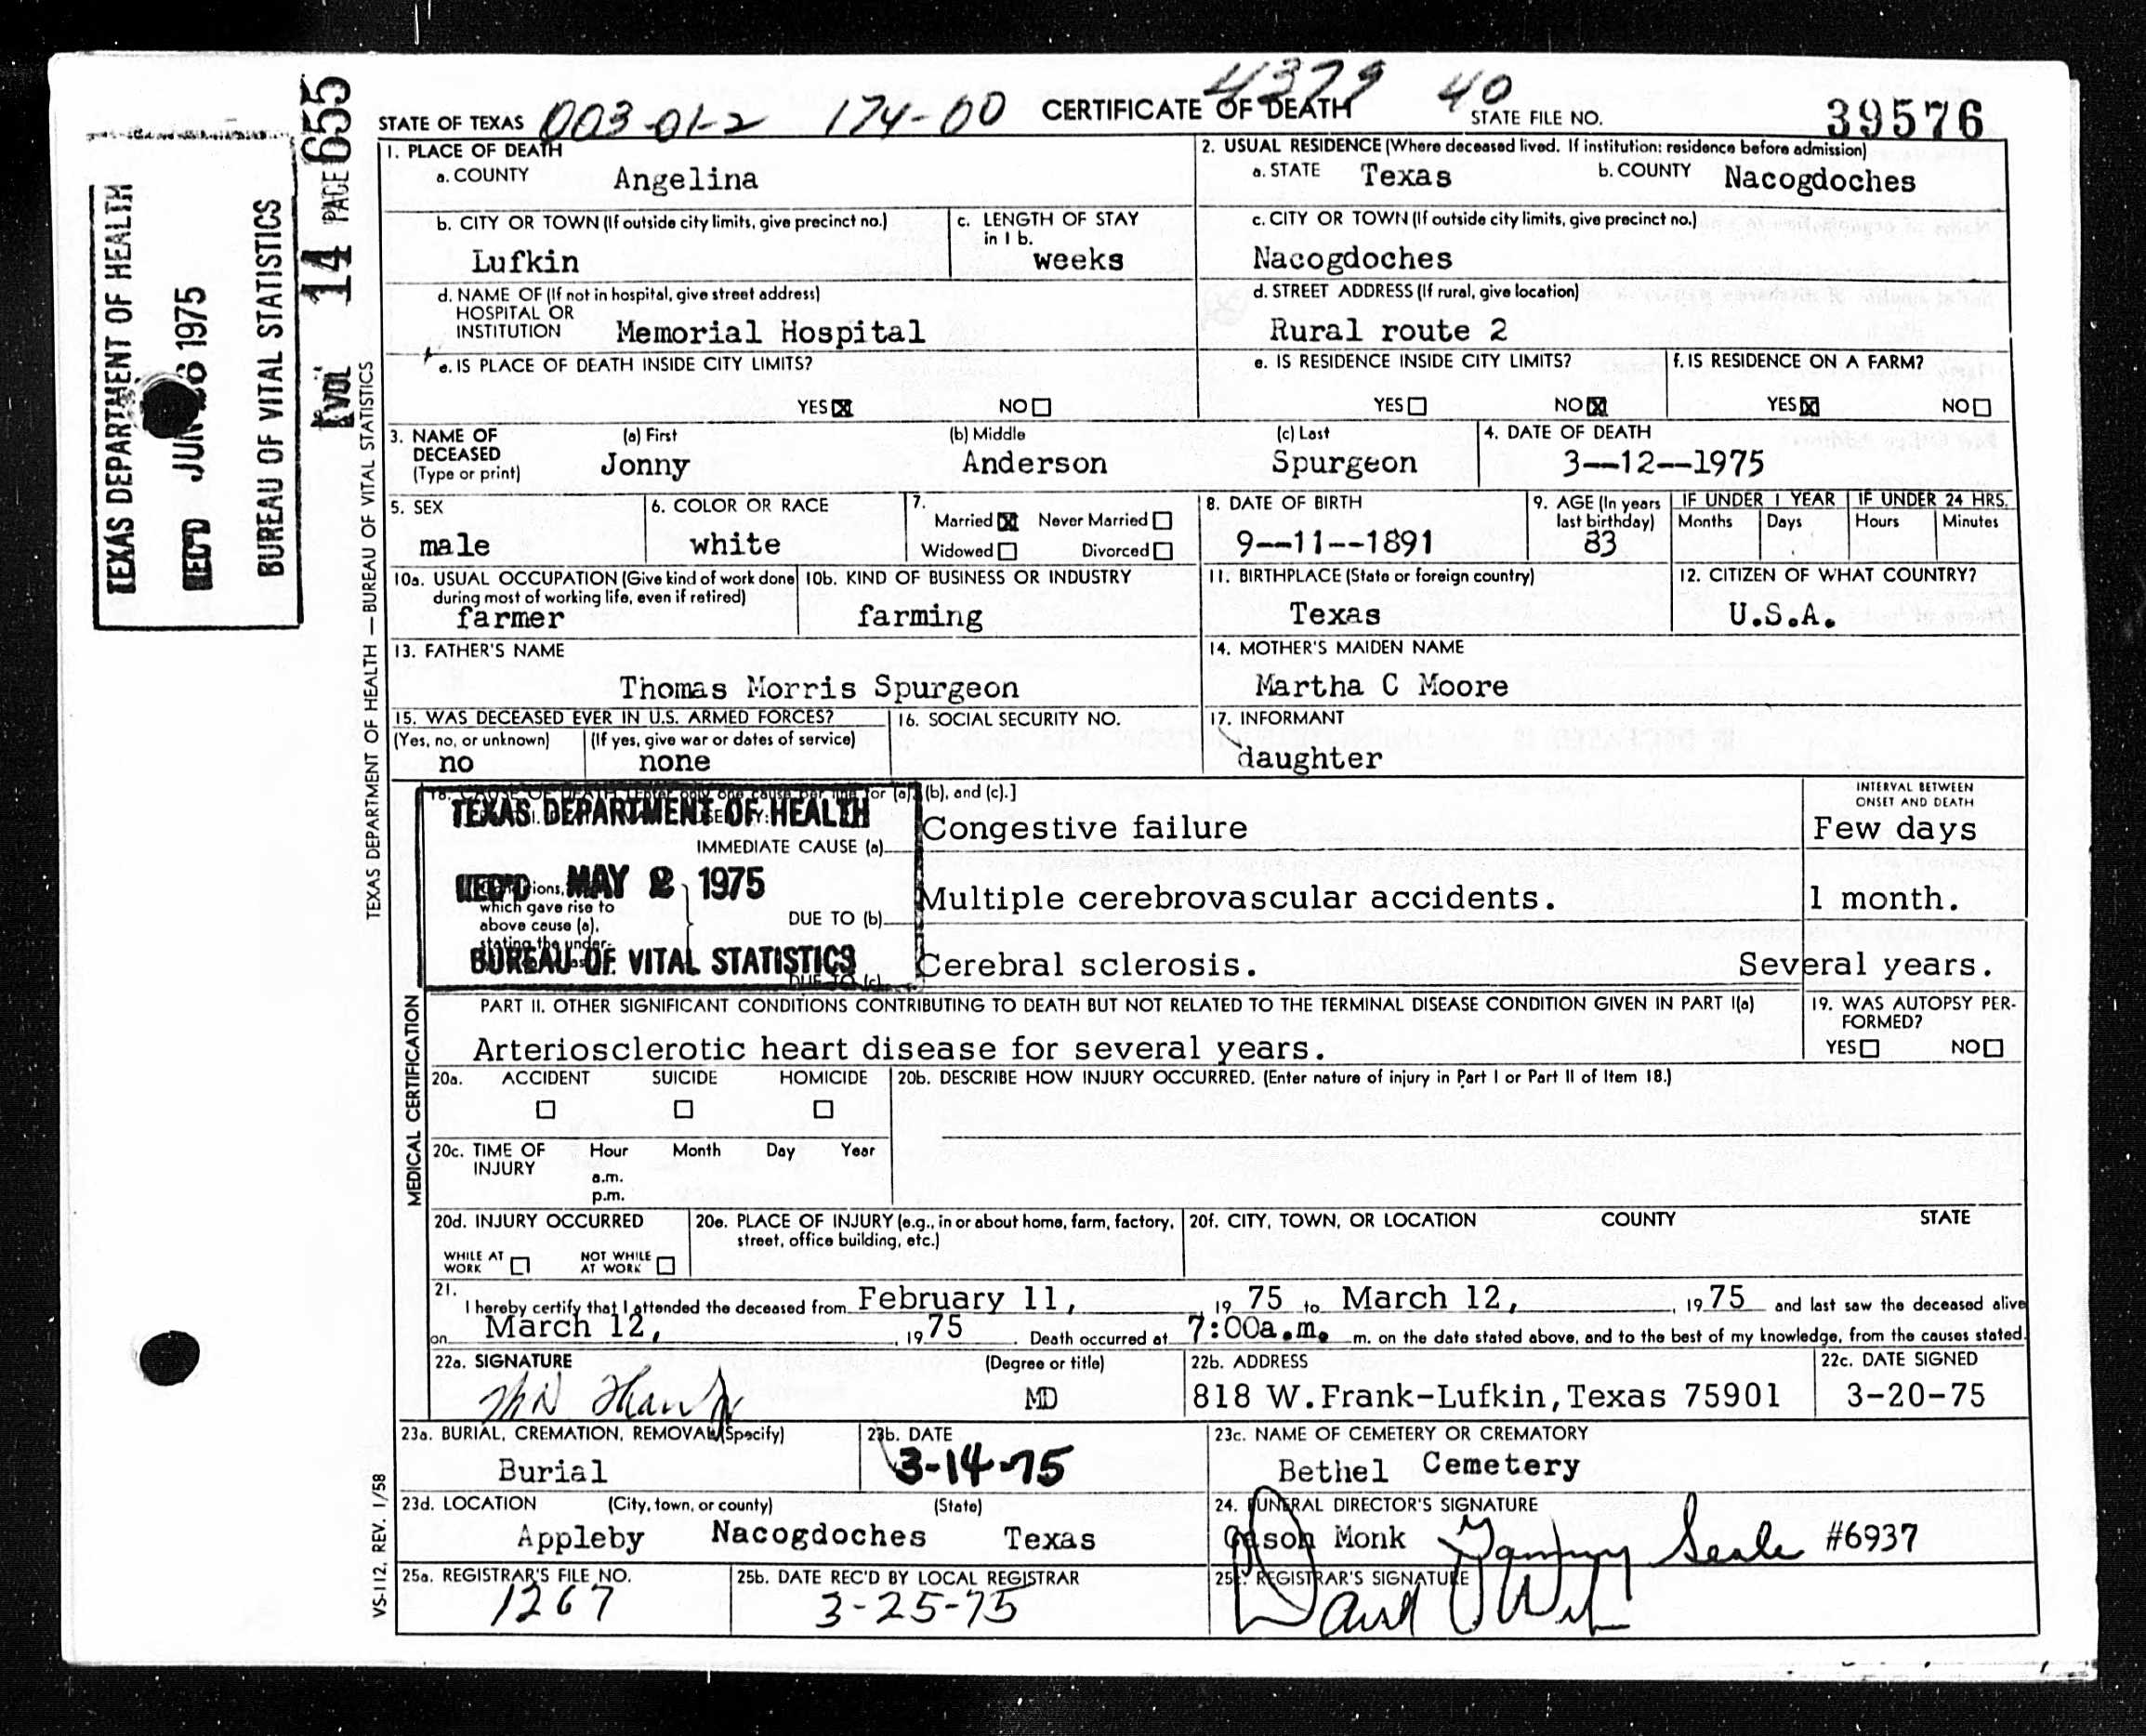 TEXAS DEPARTMENT OF HEALTH
REC'D JUN 26 1975
BUREAU OF VITAL STATISTICS
VOL 14 PAGE 655
TEXAS DEPARTMENT OF HEALTH — BUREAU OF VITAL STATISTICS
4379 40
STATE OF TEXAS 003-01-2 174-00 CERTIFICATE OF DEATH STATE FILE NO. 39576
1. PLACE OF DEATH
a. COUNTY Angelina
2. USUAL RESIDENCE (Where deceased lived. If institution: residence before admission)
a. STATE Texas b. COUNTY Nacogdoches
b. CITY OR TOWN (If outside city limits, give precinct no.)
Lufkin
c. LENGTH OF STAY
in 1 b.
weeks
c. CITY OR TOWN (If outside city limits, give precinct no.)
Nacogdoches
d. NAME OF (If not in hospital, give street address)
HOSPITAL OR
INSTITUTION Memorial Hospital
d. STREET ADDRESS (If rural, give location)
Rural route 2
e. IS PLACE OF DEATH INSIDE CITY LIMITS?
YES☒ NO☐
e. IS RESIDENCE INSIDE CITY LIMITS?
YES☐ NO☒
f. IS RESIDENCE ON A FARM?
YES☒ NO☐
3. NAME OF
DECEASED
(Type or print)
(a) First
Jonny
(b) Middle
Anderson
(c) Last
Spurgeon
4. DATE OF DEATH
3--12--1975
5. SEX
male
6. COLOR OR RACE
white
7.
Married☒ Never Married☐
Widowed☐ Divorced☐
8. DATE OF BIRTH
9--11--1891
9. AGE (In years
last birthday)
83
IF UNDER 1 YEAR
Months Days
IF UNDER 24 HRS.
Hours Minutes
10a. USUAL OCCUPATION (Give kind of work done
during most of working life, even if retired)
farmer
10b. KIND OF BUSINESS OR INDUSTRY
farming
11. BIRTHPLACE (State or foreign country)
Texas
12. CITIZEN OF WHAT COUNTRY?
U.S.A.
13. FATHER'S NAME
Thomas Morris Spurgeon
14. MOTHER'S MAIDEN NAME
Martha C Moore
15. WAS DECEASED EVER IN U.S. ARMED FORCES?
(Yes, no, or unknown)
no
(If yes, give war or dates of service)
none
16. SOCIAL SECURITY NO.
17. INFORMANT
daughter
MEDICAL CERTIFICATION
18. CAUSE OF DEATH [Enter only one cause per line for (a), (b), and (c).]
TEXAS DEPARTMENT OF HEALTH
REC'D MAY 2 1975
BUREAU OF VITAL STATISTICS
INTERVAL BETWEEN
ONSET AND DEATH
IMMEDIATE CAUSE (a) Congestive failure Few days
which gave rise to
above cause (a),
stating the under-
DUE TO (b) Multiple cerebrovascular accidents. 1 month.
DUE TO (c) Cerebral sclerosis. Several years.
PART II. OTHER SIGNIFICANT CONDITIONS CONTRIBUTING TO DEATH BUT NOT RELATED TO THE TERMINAL DISEASE CONDITION GIVEN IN PART I(a)
Arteriosclerotic heart disease for several years.
19. WAS AUTOPSY PER-
FORMED?
YES☐ NO☐
20a. ACCIDENT SUICIDE HOMICIDE
☐ ☐ ☐
20b. DESCRIBE HOW INJURY OCCURRED. (Enter nature of injury in Part I or Part II of Item 18.)
20c. TIME OF
INJURY
Hour Month Day Year
a.m.
p.m.
20d. INJURY OCCURRED
WHILE AT
WORK ☐
NOT WHILE
AT WORK ☐
20e. PLACE OF INJURY (e.g., in or about home, farm, factory,
street, office building, etc.)
20f. CITY, TOWN, OR LOCATION COUNTY STATE
21.
I hereby certify that I attended the deceased from February 11, , 19 75 to March 12, , 19 75 and last saw the deceased alive
on March 12, , 19 75 . Death occurred at 7:00a.m. m. on the date stated above, and to the best of my knowledge, from the causes stated.
22a. SIGNATURE (Degree or title)
MD
22b. ADDRESS
818 W.Frank-Lufkin,Texas 75901
22c. DATE SIGNED
3-20-75
23a. BURIAL, CREMATION, REMOVAL (Specify)
Burial
23b. DATE
3-14-75
23c. NAME OF CEMETERY OR CREMATORY
Bethel Cemetery
23d. LOCATION (City, town, or county) (State)
Appleby Nacogdoches Texas
24. FUNERAL DIRECTOR'S SIGNATURE
Cason Monk Tammy Seale #6937
25a. REGISTRAR'S FILE NO.
1267
25b. DATE REC'D BY LOCAL REGISTRAR
3-25-75
25c. REGISTRAR'S SIGNATURE
VS-112, REV. 1/58